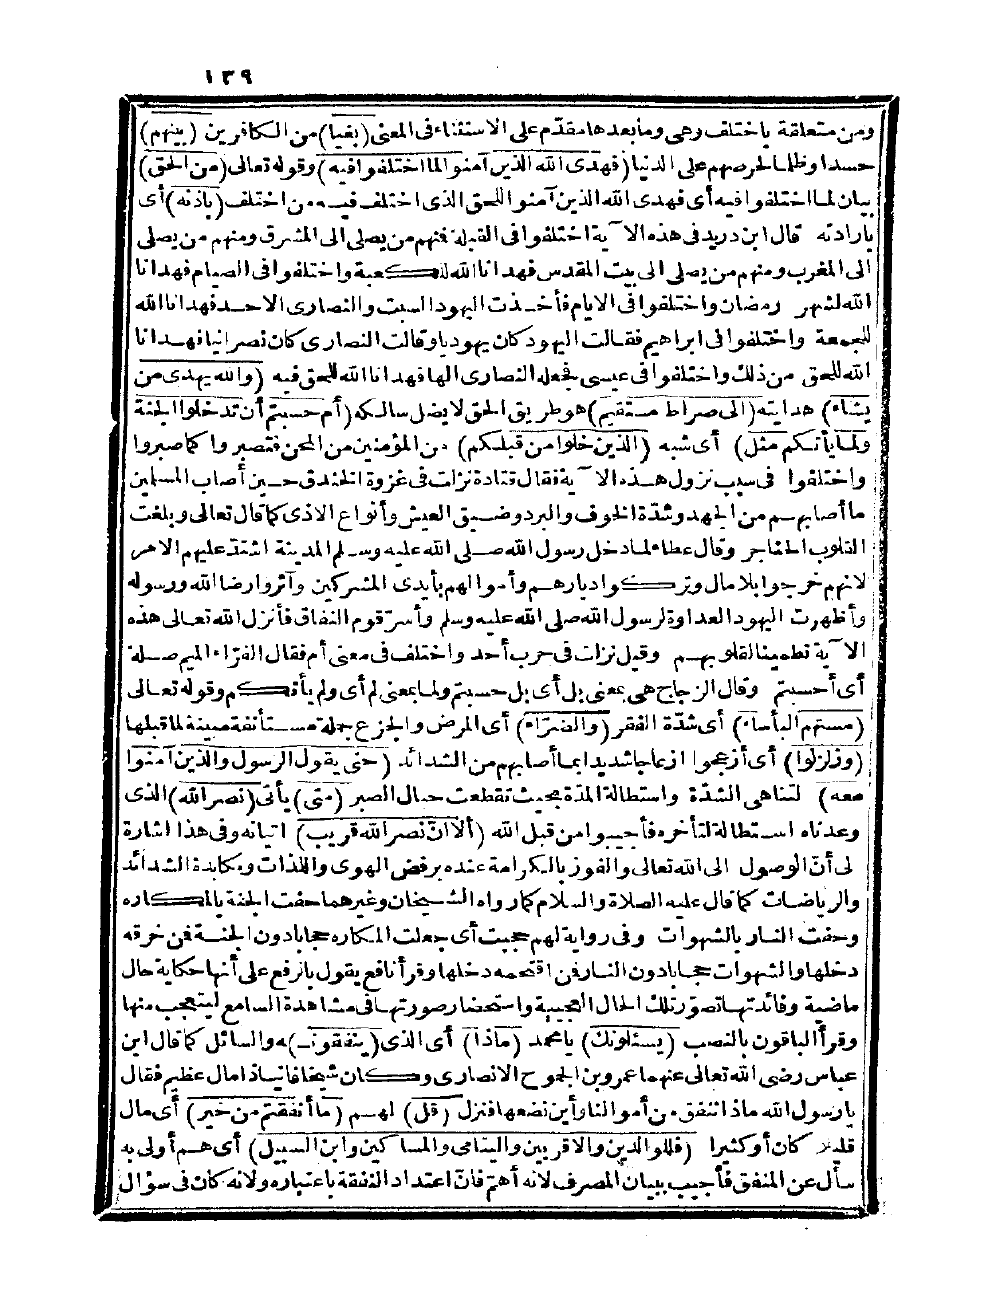 ١٣٩
ومن متعلقة باختلف وهى وما بعدها مقدم على الاستثناء فى المعنى (بغيا) من الكافرين (بينهم)
حسدا وظلما لحرصهم على الدنيا (فهدى الله الذين آمنوا لما اختلفوا فيه) وقوله تعالى (من الحق)
بيان لما اختلفوا فيه أى فهدى الله الذين آمنوا للحق الذى اختلف فيه من اختلف (باذنه) أى
بارادته قال ابن دريد فى هذه الآية اختلفوا فى القبلة فمنهم من يصلى الى المشرق ومنهم من يصلى
الى المغرب ومنهم من يصلى الى بيت المقدس فهدانا الله للكعبة واختلفوا فى الصيام فهدانا
الله لشهر رمضان واختلفوا فى الايام فأخذت اليهود السبت والنصارى الاحد فهدانا الله
للجمعة واختلفوا فى ابراهيم فقالت اليهود كان يهوديا وقالت النصارى كان نصرانيا فهدانا
الله للحق من ذلك واختلفوا فى عيسى فجعله النصارى الها فهدانا الله للحق فيه (والله يهدى من
يشاء) هدايته (الى صراط مستقيم) هو طريق الحق لا يضل سالكه (أم حسبتم أن تدخلوا الجنة
ولما يأتكم مثل) أى شبه (الذين خلوا من قبلكم) من المؤمنين من المحن فتصبروا كما صبروا
واختلفوا فى سبب نزول هذه الآية فقال قتادة نزلت فى غزوة الخندق حين أصاب المسلمين
ما أصابهم من الجهد وشدة الخوف والبرد وضيق العيش وأنواع الاذى كما قال تعالى وبلغت
القلوب الحناجر وقال عطاء لما دخل رسول الله صلى الله عليه وسلم المدينة اشتد عليهم الامر
لانهم خرجوا بلا مال وتركوا ديارهم وأموالهم بأيدى المشركين وآثروا رضا الله ورسوله
وأظهرت اليهود العداوة لرسول الله صلى الله عليه وسلم وأسر قوم النفاق فأنزل الله تعالى هذه
الآية تطمينا لقلوبهم وقيل نزلت فى حرب أحد واختلف فى معنى أم فقال الفراء الميم صلة
أى أحسبتم وقال الزجاج هى بمعنى بل أى بل حسبتم ولما بمعنى لم أى ولم يأتكم وقوله تعالى
(مستهم البأساء) أى شدة الفقر (والضراء) أى المرض والجزع جملة مستأنفة مبينة لما قبلها
(وزلزلوا) أى أزعجوا ازعاجا شديدا بما أصابهم من الشدائد (حتى يقول الرسول والذين آمنوا
معه) لتناهى الشدة واستطالة المدة بحيث تقطعت حبال الصبر (متى) يأتى (نصر الله) الذى
وعدناه استطالة لتأخره فأجيبوا من قبل الله (ألا ان نصر الله قريب) اتيانه وفى هذا اشارة
لى أن الوصول الى الله تعالى والفوز بالكرامة عنده برفض الهوى واللذات ومكابدة الشدائد
والرياضات كما قال عليه الصلاة والسلام كما رواه الشيخان وغيرهما حفت الجنة بالمكاره
وحفت النار بالشهوات وفى رواية لهم حجبت أى جعلت المكاره حجابا دون الجنة فمن خرقه
دخلها والشهوات حجابا دون النار فمن اقتحمه دخلها وقرأ نافع يقول بالرفع على أنها حكاية حال
ماضية وفائدتها تصور تلك الحال العجيبة واستحضار صورتها فى مشاهدة السامع ليتعجب منها
وقرأ الباقون بالنصب (يسئلونك) يا محمد (ماذا) أى الذى (ينفقون) ه والسائل كما قال ابن
عباس رضى الله تعالى عنهما عمرو بن الجموح الانصارى وكان شيخا فانيا ذا مال عظيم فقال
يا رسول الله ماذا ننفق من أموالنا وأين نضعها فنزل (قل) لهم (ما أنفقتم من خير) أى مال
قليلا كان أو كثيرا (فللوالدين والاقربين واليتامى والمساكين وابن السبيل) أى هم أولى به
سأل عن المنفق فأجيب ببيان المصرف لانه أهم فان اعتداد النفقة باعتباره ولانه كان فى سؤال